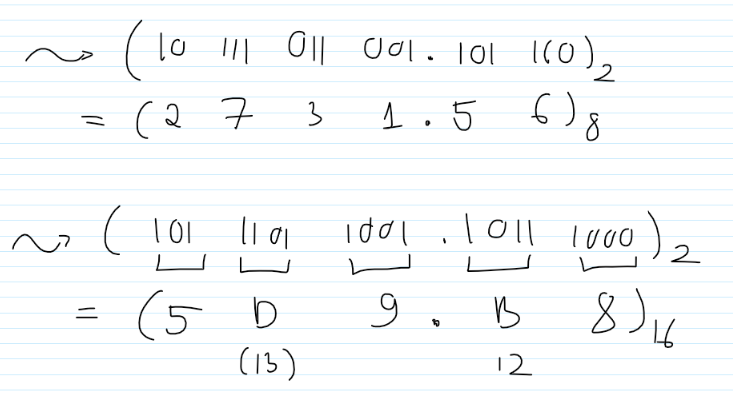 ⇝ (10 111 011 001. 101 110)₂
= (2 7 3 1 . 5 6)₈
⇝ (101 1101 1001 . 1011 1000)₂
= (5 D 9 . B 8)₁₆
(13) 12